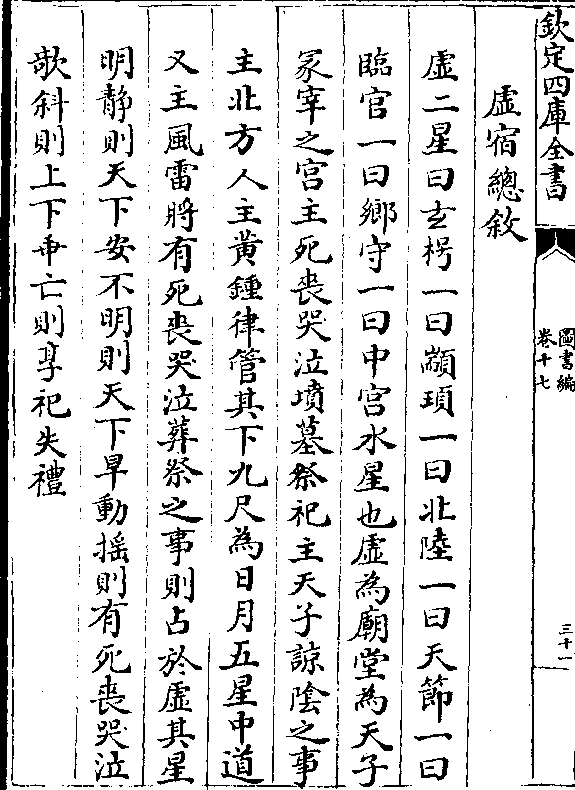 欽定四庫全書
圖書編
卷十七
三十一
虛宿總敘
虛二星曰玄枵一曰顓頊一曰北陸一曰天節一曰
臨官一曰鄉守一曰中宮水星也虛為廟堂為天子
冢宰之官主死喪哭泣墳墓祭祀主天子諒陰之事
主北方人主黃鍾律管其下九尺為日月五星中道
又主風雷將有死喪哭泣葬祭之事則占於虛其星
明靜則天下安不明則天下旱動搖則有死喪哭泣
欹斜則上下乖亡則享祀失禮